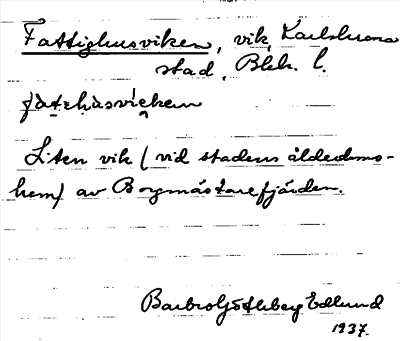 Fattighusviken, vik, Karlskrona
stad, Blek. l.
fàtеhùsvi̇̂ken
Liten vik (vid stadens ålderdoms-
hem) av Borgmästarefjärden.
Barbro Götheberg Edlund
1937.